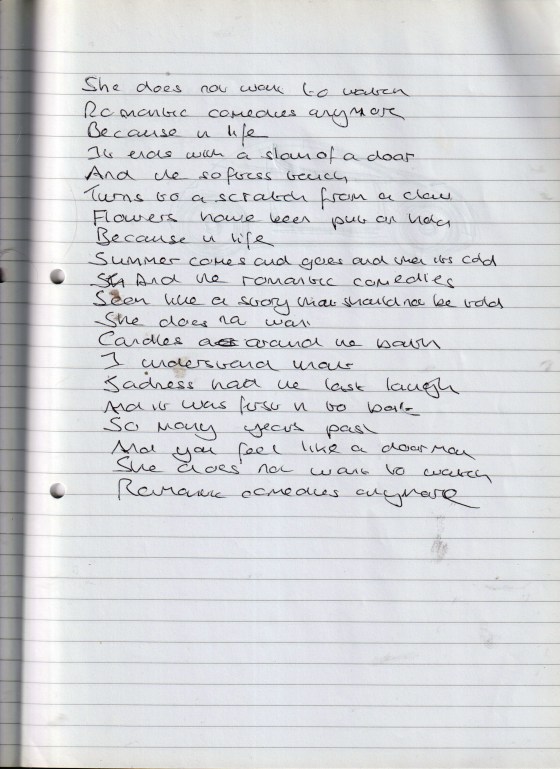 She does not want to watch
Romantic comedies anymore
Because in life
It ends with a slam of a door
And the softest touch
Turns to a scratch from a claw
Flowers have been put on hold
Because in life
Summer comes and goes and then its cold
And the romantic comedies
Seem like a story that should not be told
She does not want
Candles around the bath
I understand that
Sadness had the last laugh
And it was first in to bat
So many years past
And you feel like a doormat
She does not want to watch
Romantic comedies anymore